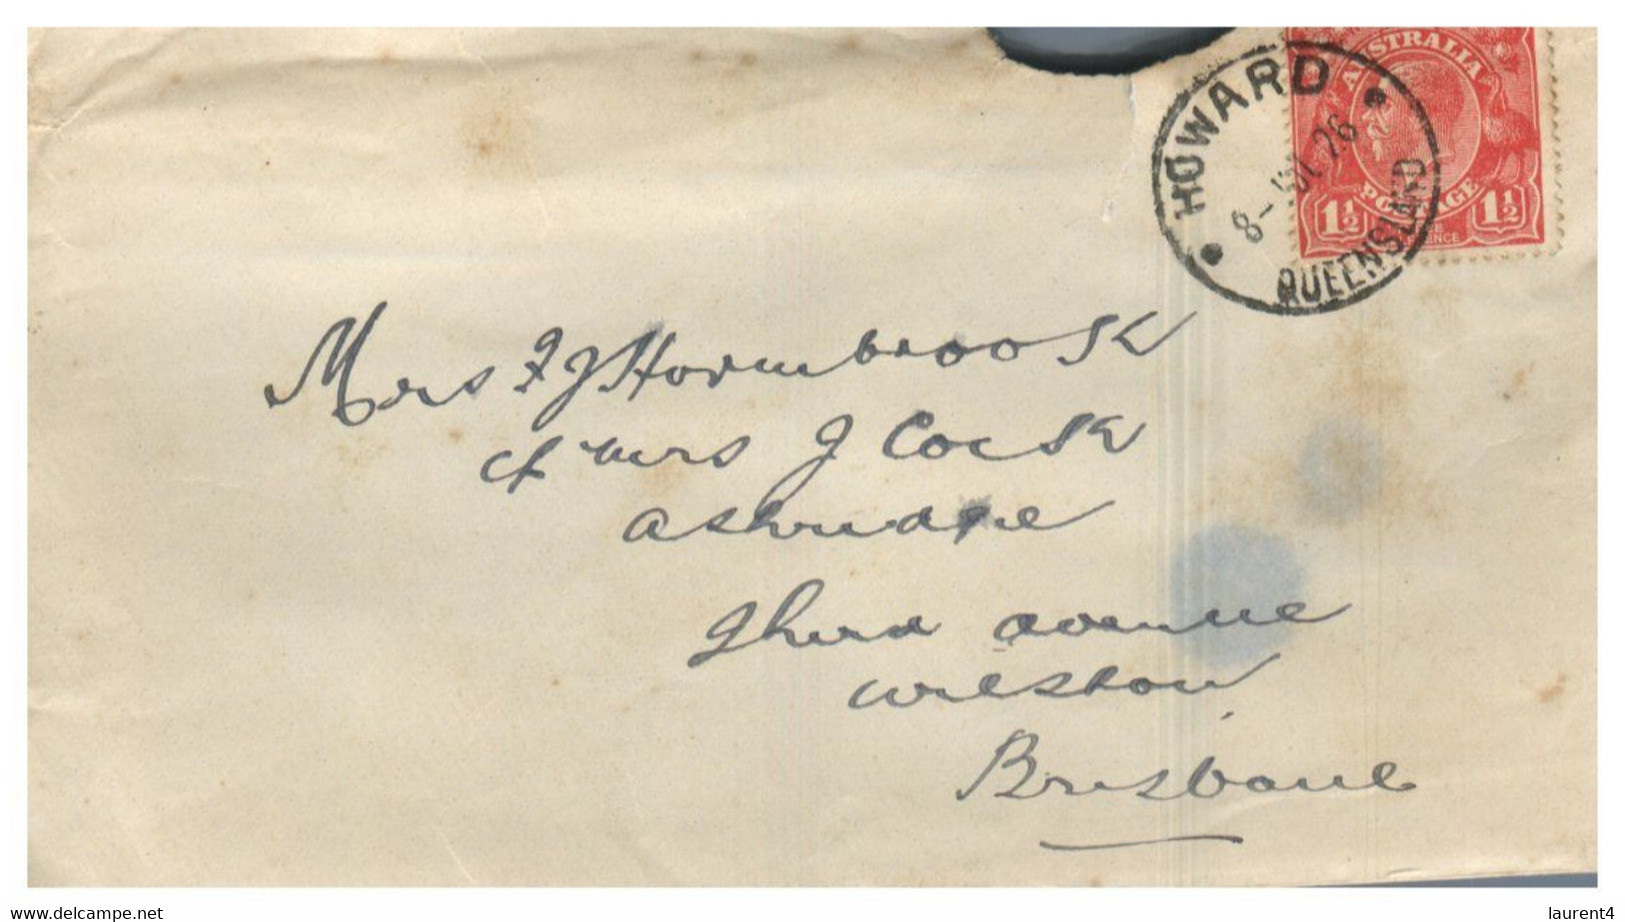 HOWARD
8-JUL 26
QUEENSLAND
AUSTRALIA
POSTAGE
1½ 1½
PENCE
Mrs F J Hornbrook
c/ Mrs J Cock
Ashridge
Third Avenue
Wilston
Brisbane
https://www.delcampe.net
laurent4